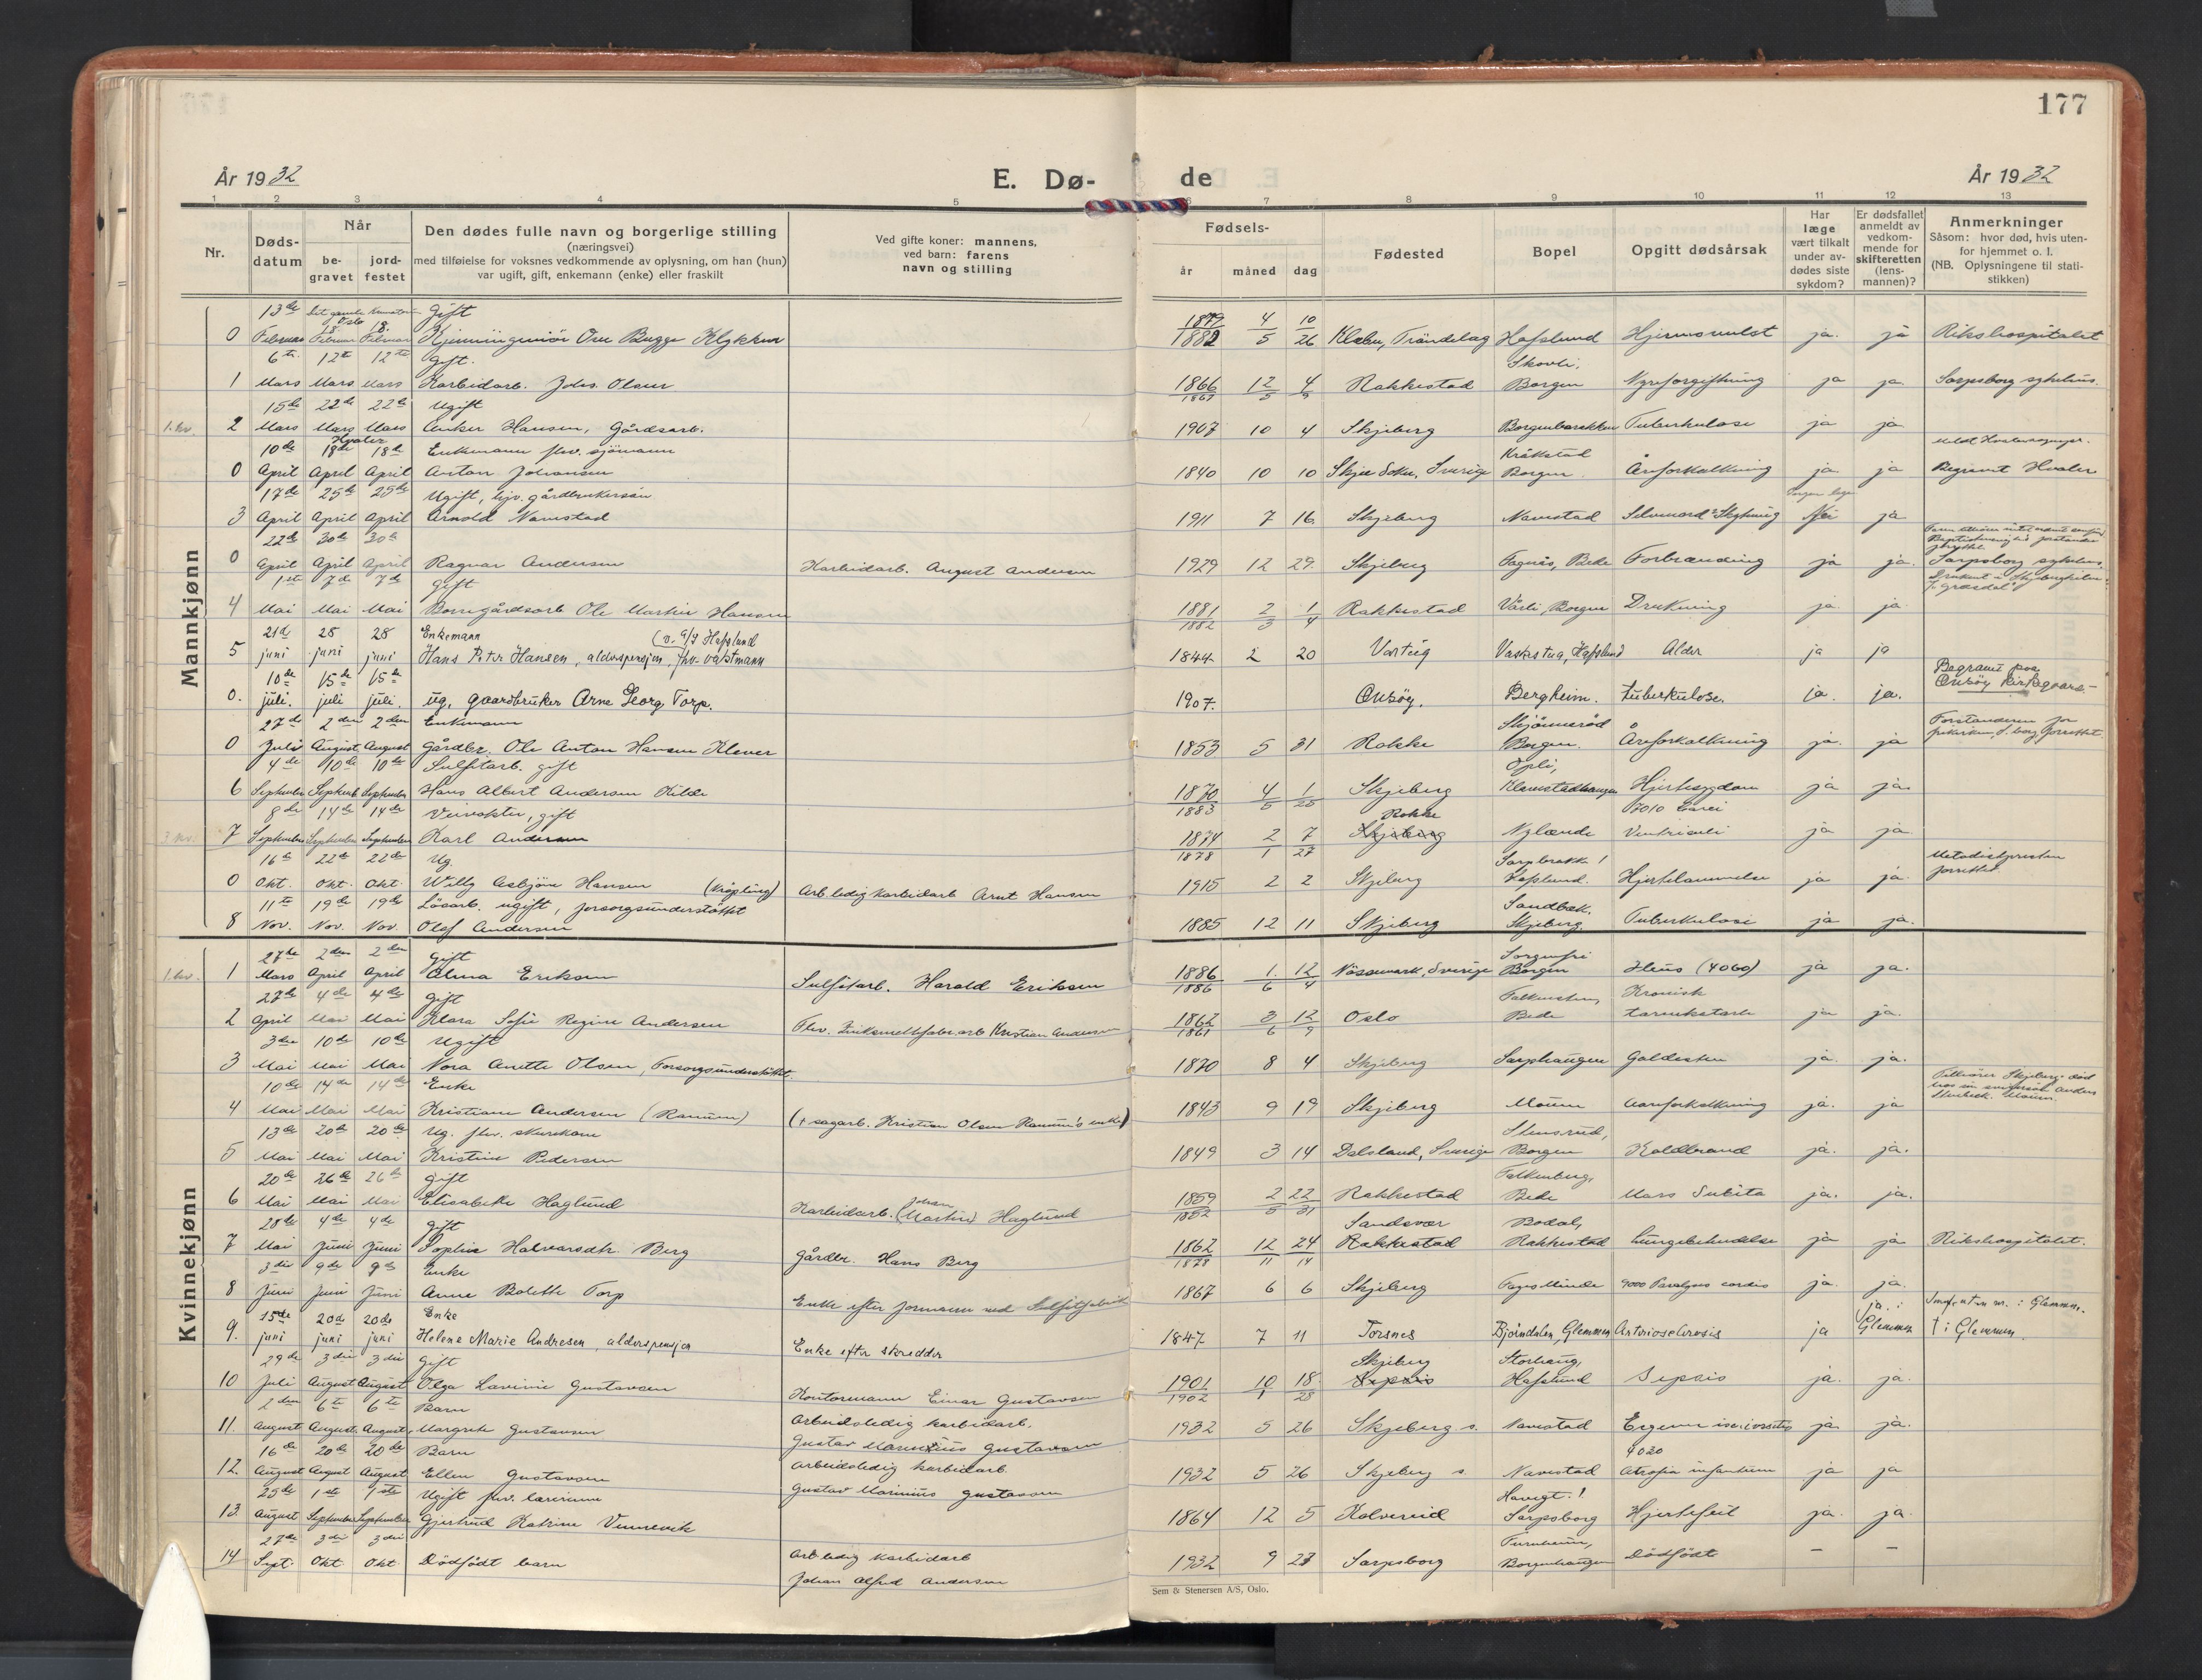 177
År 1932
E. Dø-
de
År 1932
1 2 3 4 5 6 7 8 9 10 11 12 13
Nr.
Døds-
datum
Når
be-
gravet
jord-
festet
Den dødes fulle navn og borgerlige stilling
(næringsvei)
med tilføielse for voksnes vedkommende av oplysning, om han (hun)
var ugift, gift, enkemann (enke) eller fraskilt
Ved gifte koner: mannens,
ved barn: farens
navn og stilling
Fødsels-
år måned dag
Fødested
Bopel
Opgitt dødsårsak
Har
læge
vært tilkalt
under av-
dødes siste
sykdom?
Er dødsfallet
anmeldt av
vedkom-
mende for
skifteretten
(lens-
mannen)?
Anmerkninger
Såsom: hvor død, hvis uten-
for hjemmet o. l.
(NB. Oplysningene til stati-
stikken)
Mannkjønn
13de Gift 1879 4 10
0 Februar Februar Februar Kjemiingeniör Ove Bugge Klykken 1882 5 26 Klæbu, Tröndelag Hafslund Hjernesvulst ja. ja Rikshospitalet
6te 12te 12te Gift. Skovli,
1 Mars Mars Mars Karbidarb. Johs. Olsen 1866 12 4 Rakkestad Borgen Nyreforgiftning ja ja. Sarpsborg sykehus.
15de 22de 22de Ugift
1. kv. 2 Mars Mars Mars Anker Hansen, Gårdsarb. 1907 10 4 Skjeberg Borgenbarakken Tuberkulose ja ja
10de Hvaler 18de 18de Enkemann fhv. sjömann Kråkstad
0 April April April Anton Johansen 1840 10 10 Skje Sokn, Sverige Borgen Åreforkalkning ja ja Begravet Hvaler
17de 25de 25de Ugift, hjv. gårdbrukersön
3 April April April Arnold Navestad 1911 7 16 Skjeberg Navestad Selvmord: Skytning Nei ja
22de 30te 30te
0 April April April Ragnar Andersen Karbidarb. August Andersen 1929 12 29. Skjeberg Fagnäs, Bede Forbrænding ja ja. Sarpsborg sykehus.
1ste 7de 7de Gift
4 Mai Mai Mai Borregårdsarb Ole Martin Hansen 1881 2 1 Rakkestad Vårli, Borgen Drukning ja ja
1882 3 4
21de 28 28 Enkemann (v. A/S Hafslund
5 juni juni juni Hans Peter Hansen, alderspensjon, fhv. vaktmann 1844 2 20 Varteig Vaskestua, Hafslund Alder ja ja
10de 15de 15de Begravet paa
0. juli. juli juli. ug, gaardbruker Arne Georg Torp. 1907. Onsöy. Bergheim. tuberkulose. ja. ja. Onsöy kirkegaard.
27de 2den 2den Enkemann Skjönnerød
0 Juli August August Gårdbr. Ole Anton Hansen Klever 1853 5 31 Rokke Borgen. Åreforkalkning ja. ja
4de 10de 10de Sulfitarb. gift Opli,
6 September Septemb. September Hans Albert Andersen Kilde 1870 4 1 Skjeberg Klavestadhaugen Hjertesygdom ja ja.
1883 5 25
8de 14de 14de Veivokter, gift Rokke
7 September September September Karl Andersen 1874 2 7 Skjeberg Nylænde Ventriculi ja ja.
1878 1 27
16de 22de 22de Ug. Metodistpresten
0 Okt. Okt. Okt. Willy Asbjörn Hansen (krøpling) Arb.ledig karbidarb Arnt Hansen 1915 2 2 Skjeberg Hafslund. Hjertelammelse ja ja. forrettet.
11te 19de 19de Lösarb. ugift, forsorgsunderstöttet Sandbæk,
8 Nov. Nov. Nov. Olaf Andersen 1885 12 11 Skjeberg Skjeberg. Tuberkulose ja ja.
Kvinnekjønn
27de 2den 2den Gift Sorgenfri
1. kv. 1 Mars April April Alma Eriksen Sulfitarb. Harald Eriksen 1886 1. 12 Nössemark, Sverige Borgen Ileus (4060) ja ja.
1886 6 4
27de 4de 4de Gift Kronisk
2 April Mai Mai Klara Sofie Regine Andersen Fhv. Zinksmelthytarb Kristian Andersen 1862 3 12 Oslo Bede tarmkatarh ja ja.
1861 6 9
3die 10de 10de Ugift
3 Mai Mai Mai Nora Anette Olsen, Forsorgsunderstöttet. 1870 8 4 Skjeberg Sarphaugen Galdesten ja. ja.
10de 14de 14de Enke
4 Mai Mai Mai Kristiane Andersen (Ramum) († sagarb. Kristian Olsen Ramum's enke) 1843 9 19 Skjeberg Moum Aareforkalkning ja. ja
13de 20de 20de Ug. fhv. skurekone Stensrud,
5 Mai Mai Mai Kristine Pedersen 1849 3 14 Dalsland, Sverige Borgen Koldbrand ja. ja.
20de 26de 26de Gift Falkenberg,
6 Mai Mai Mai Elisabeth Haglund Karbidarb. (Martin) Johan Haglund 1859 2 22 Rakkestad Bede Mors Subita ja. ja.
1852 5 31
28de 4de 4de Gift Sandsvær Bodal,
7 Mai Juni Juni Sophie Halvorsdtr. Berg Gårdbr. Hans Berg 1862 12 24 Rakkestad Rakkestad Lungebetendelse ja ja Rikshospitalet.
1878 11 14
3die 9de 9de Enke
8 Juni Juni Juni Anne Bolette Torp Enke efter formann ved Sulfitfabrik 1867 6 6 Skjeberg Fagerlinde 9000 Paralysis cordis ja. ja.
15de 20de 20de Enke ja. i
9. juni juni juni Helene Marie Andresen, alderspensjon Enke efter skredder 1847 7 11 Torsnes Bjørndalen, Glemmen Arteriosclerosis ja Glemmen † i Glemmen.
29de 3die 3die Gift Skjeberg Storhaug,
10 Juli August August Olga Lavinie Gustavsen Kontormann Einar Gustavsen 1901 10 18. Sepsis Hafslund Sepsis ja. ja.
1902 1 28
2den 6te 6te Barn Arbeidsledig karbidarb.
11. August August August Margrete Gustavsen Gustav Marinius Gustavsen 1932 5 26 Skjeberg s. Navestad ja ja.
16de 20de 20de Barn Arbeidsledig karbidarb. 4020
12. August August August Ellen Gustavsen Gustav Marinius Gustavsen 1932 5 26 Skjeberg s Navestad Atrofia infantum ja ja
25de 1ste 1ste Ugift fhv. lærerinne
13. August September September Gjertrud Katrine Vennevik 1864 12 5 Kolvereid Sarpsborg Hjertefeil ja. ja.
27de 3die 3die Arb.ledig karbidarb Furuheim,
14 Sept. Okt. Okt. Dödfödt barn Johan Alfred Andersen 1932 9 27 Sarpsborg Borgenhaugen Dödfödt – –
Sem & Stenersen A/S, Oslo.